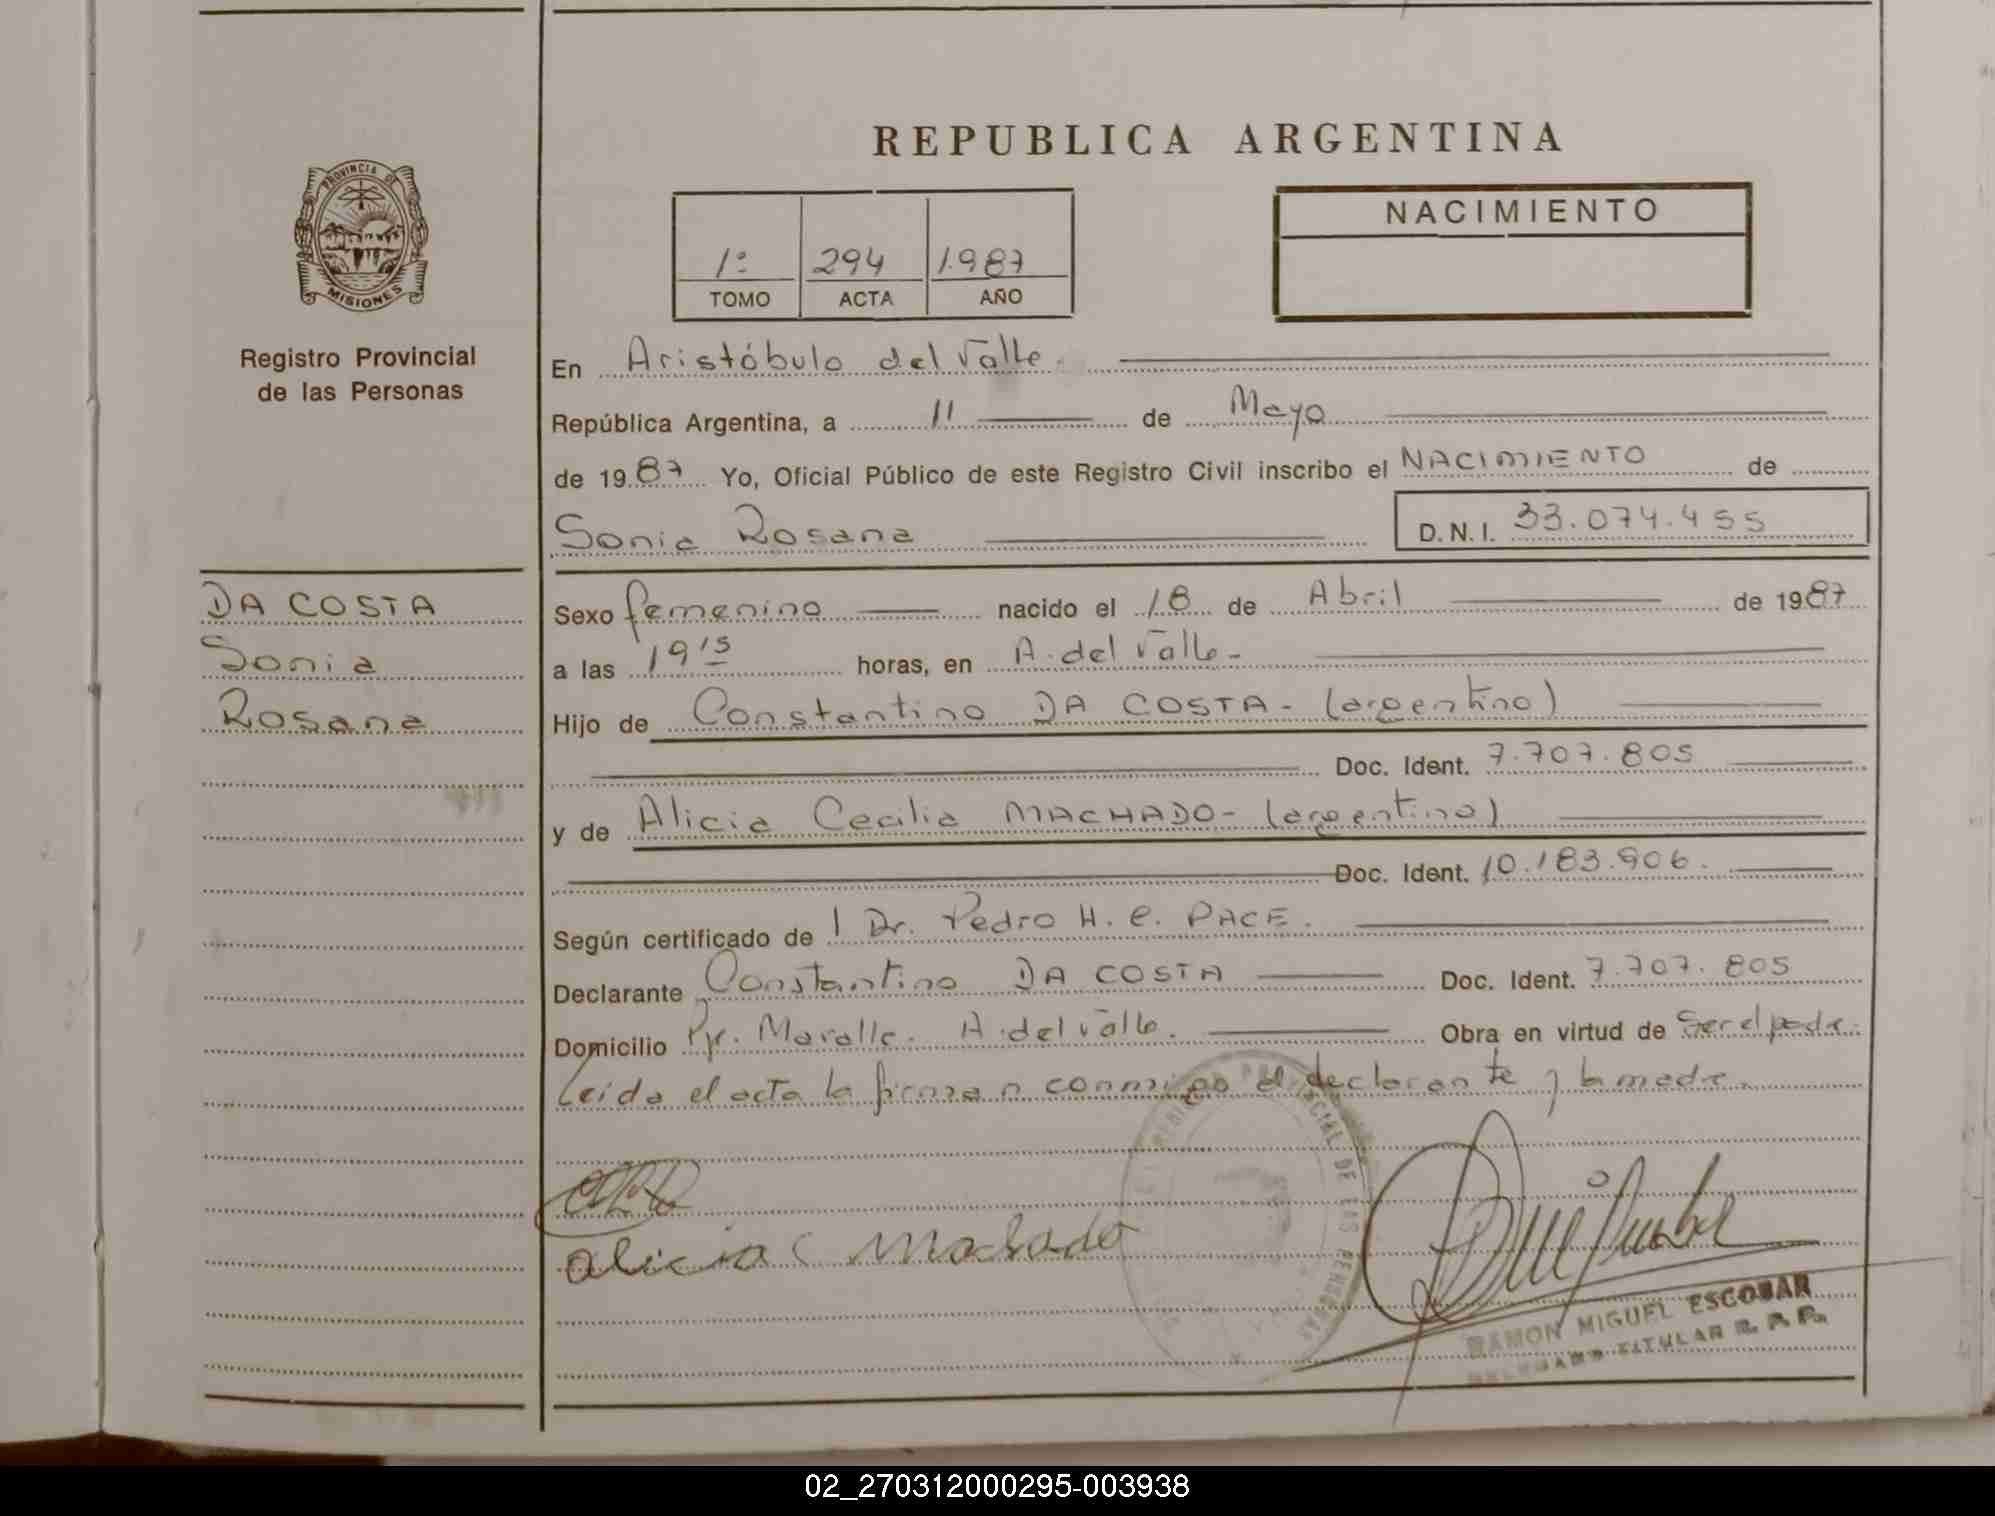 REPUBLICA ARGENTINA
PROVINCIA DE
MISIONES
Registro Provincial
de las Personas
1º 294 1.987
TOMO ACTA AÑO
NACIMIENTO
En Aristóbulo del Valle.
República Argentina, a 11 de Mayo
de 1987 Yo, Oficial Público de este Registro Civil inscribo el NACIMIENTO de
Sonia Rosana D.N.I. 33.074.455
DA COSTA
Sonia
Rosana
Sexo femenino nacido el 18 de Abril de 1987
a las 19 15 horas, en A. del Valle.-
Hijo de Constantino DA COSTA - (argentino)
Doc. Ident. 7.707.805
y de Alicia Cecilia MACHADO - (argentina)
Doc. Ident. 10.183.906.
Según certificado de l Dr. Pedro H. C. PACE.
Declarante Constantino DA COSTA Doc. Ident. 7.707.805
Domicilio Pje. A. del Valle. Obra en virtud de Ser el padre.
Leida el acta la firman conmigo el declarante y la madre.
alicia C Machado
REGISTRO PROVINCIAL DE LAS PERSONAS
RAMON MIGUEL ESCOBAR
DELEGADO TITULAR R. P. P.
02_270312000295-003938